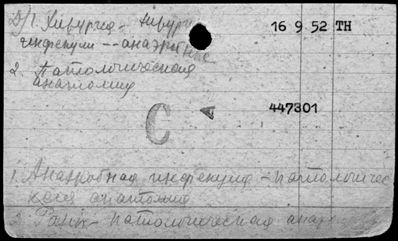 Хирургия - хирург
16 9 52 TH
инфекции -- анаэробные
2. Патологическая
анатомия
С
447301
1. Анаэробная инфекция - патологичес
кая анатомия
3. Раны - патологическая анатомия